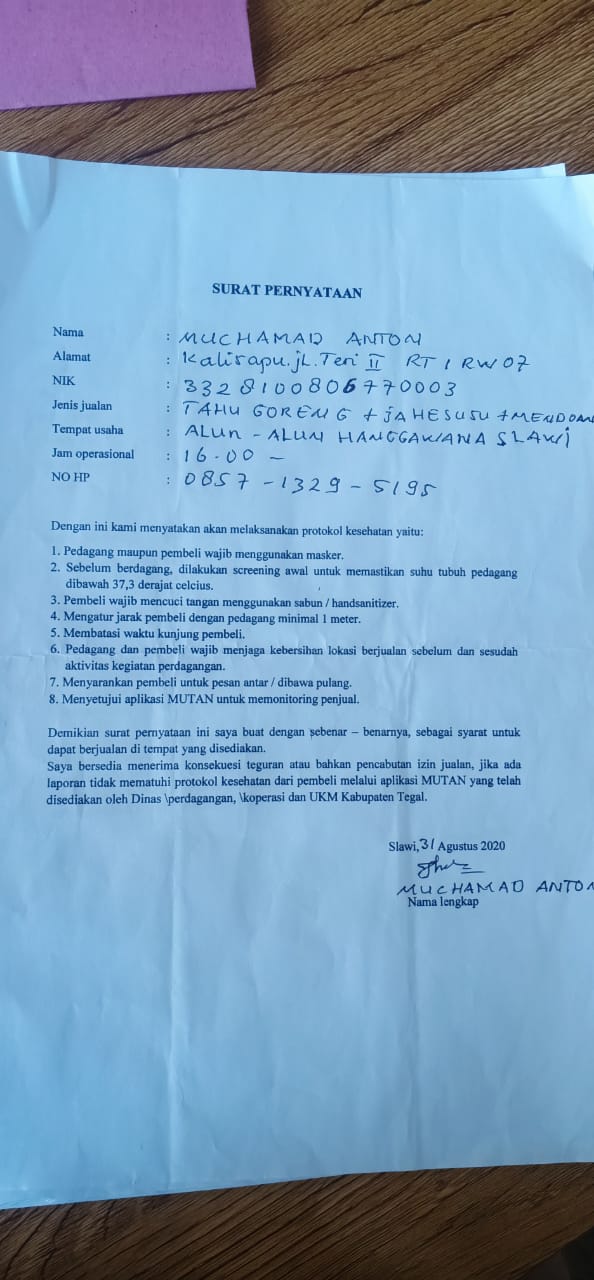 SURAT PERNYATAAN
Nama : MUCHAMAD ANTON
Alamat : Kalisapu.jL.Teri II RT 1 RW 07
NIK : 3328100806770003
Jenis jualan : TAHU GORENG + jAHESUSU + MENDOAN
Tempat usaha : ALUN - ALUN HANGGAWANA SLAWI
Jam operasional : 16.00 -
NO HP : 0857-1329-5195
Dengan ini kami menyatakan akan melaksanakan protokol kesehatan yaitu:
1. Pedagang maupun pembeli wajib menggunakan masker.
2. Sebelum berdagang, dilakukan screening awal untuk memastikan suhu tubuh pedagang
dibawah 37,3 derajat celcius.
3. Pembeli wajib mencuci tangan menggunakan sabun / handsanitizer.
4. Mengatur jarak pembeli dengan pedagang minimal 1 meter.
5. Membatasi waktu kunjung pembeli.
6. Pedagang dan pembeli wajib menjaga kebersihan lokasi berjualan sebelum dan sesudah
aktivitas kegiatan perdagangan.
7. Menyarankan pembeli untuk pesan antar / dibawa pulang.
8. Menyetujui aplikasi MUTAN untuk memonitoring penjual.
Demikian surat pernyataan ini saya buat dengan sebenar – benarnya, sebagai syarat untuk
dapat berjualan di tempat yang disediakan.
Saya bersedia menerima konsekuesi teguran atau bahkan pencabutan izin jualan, jika ada
laporan tidak mematuhi protokol kesehatan dari pembeli melalui aplikasi MUTAN yang telah
disediakan oleh Dinas \perdagangan, \koperasi dan UKM Kabupaten Tegal.
Slawi, 31 Agustus 2020
MUCHAMAD ANTON
Nama lengkap